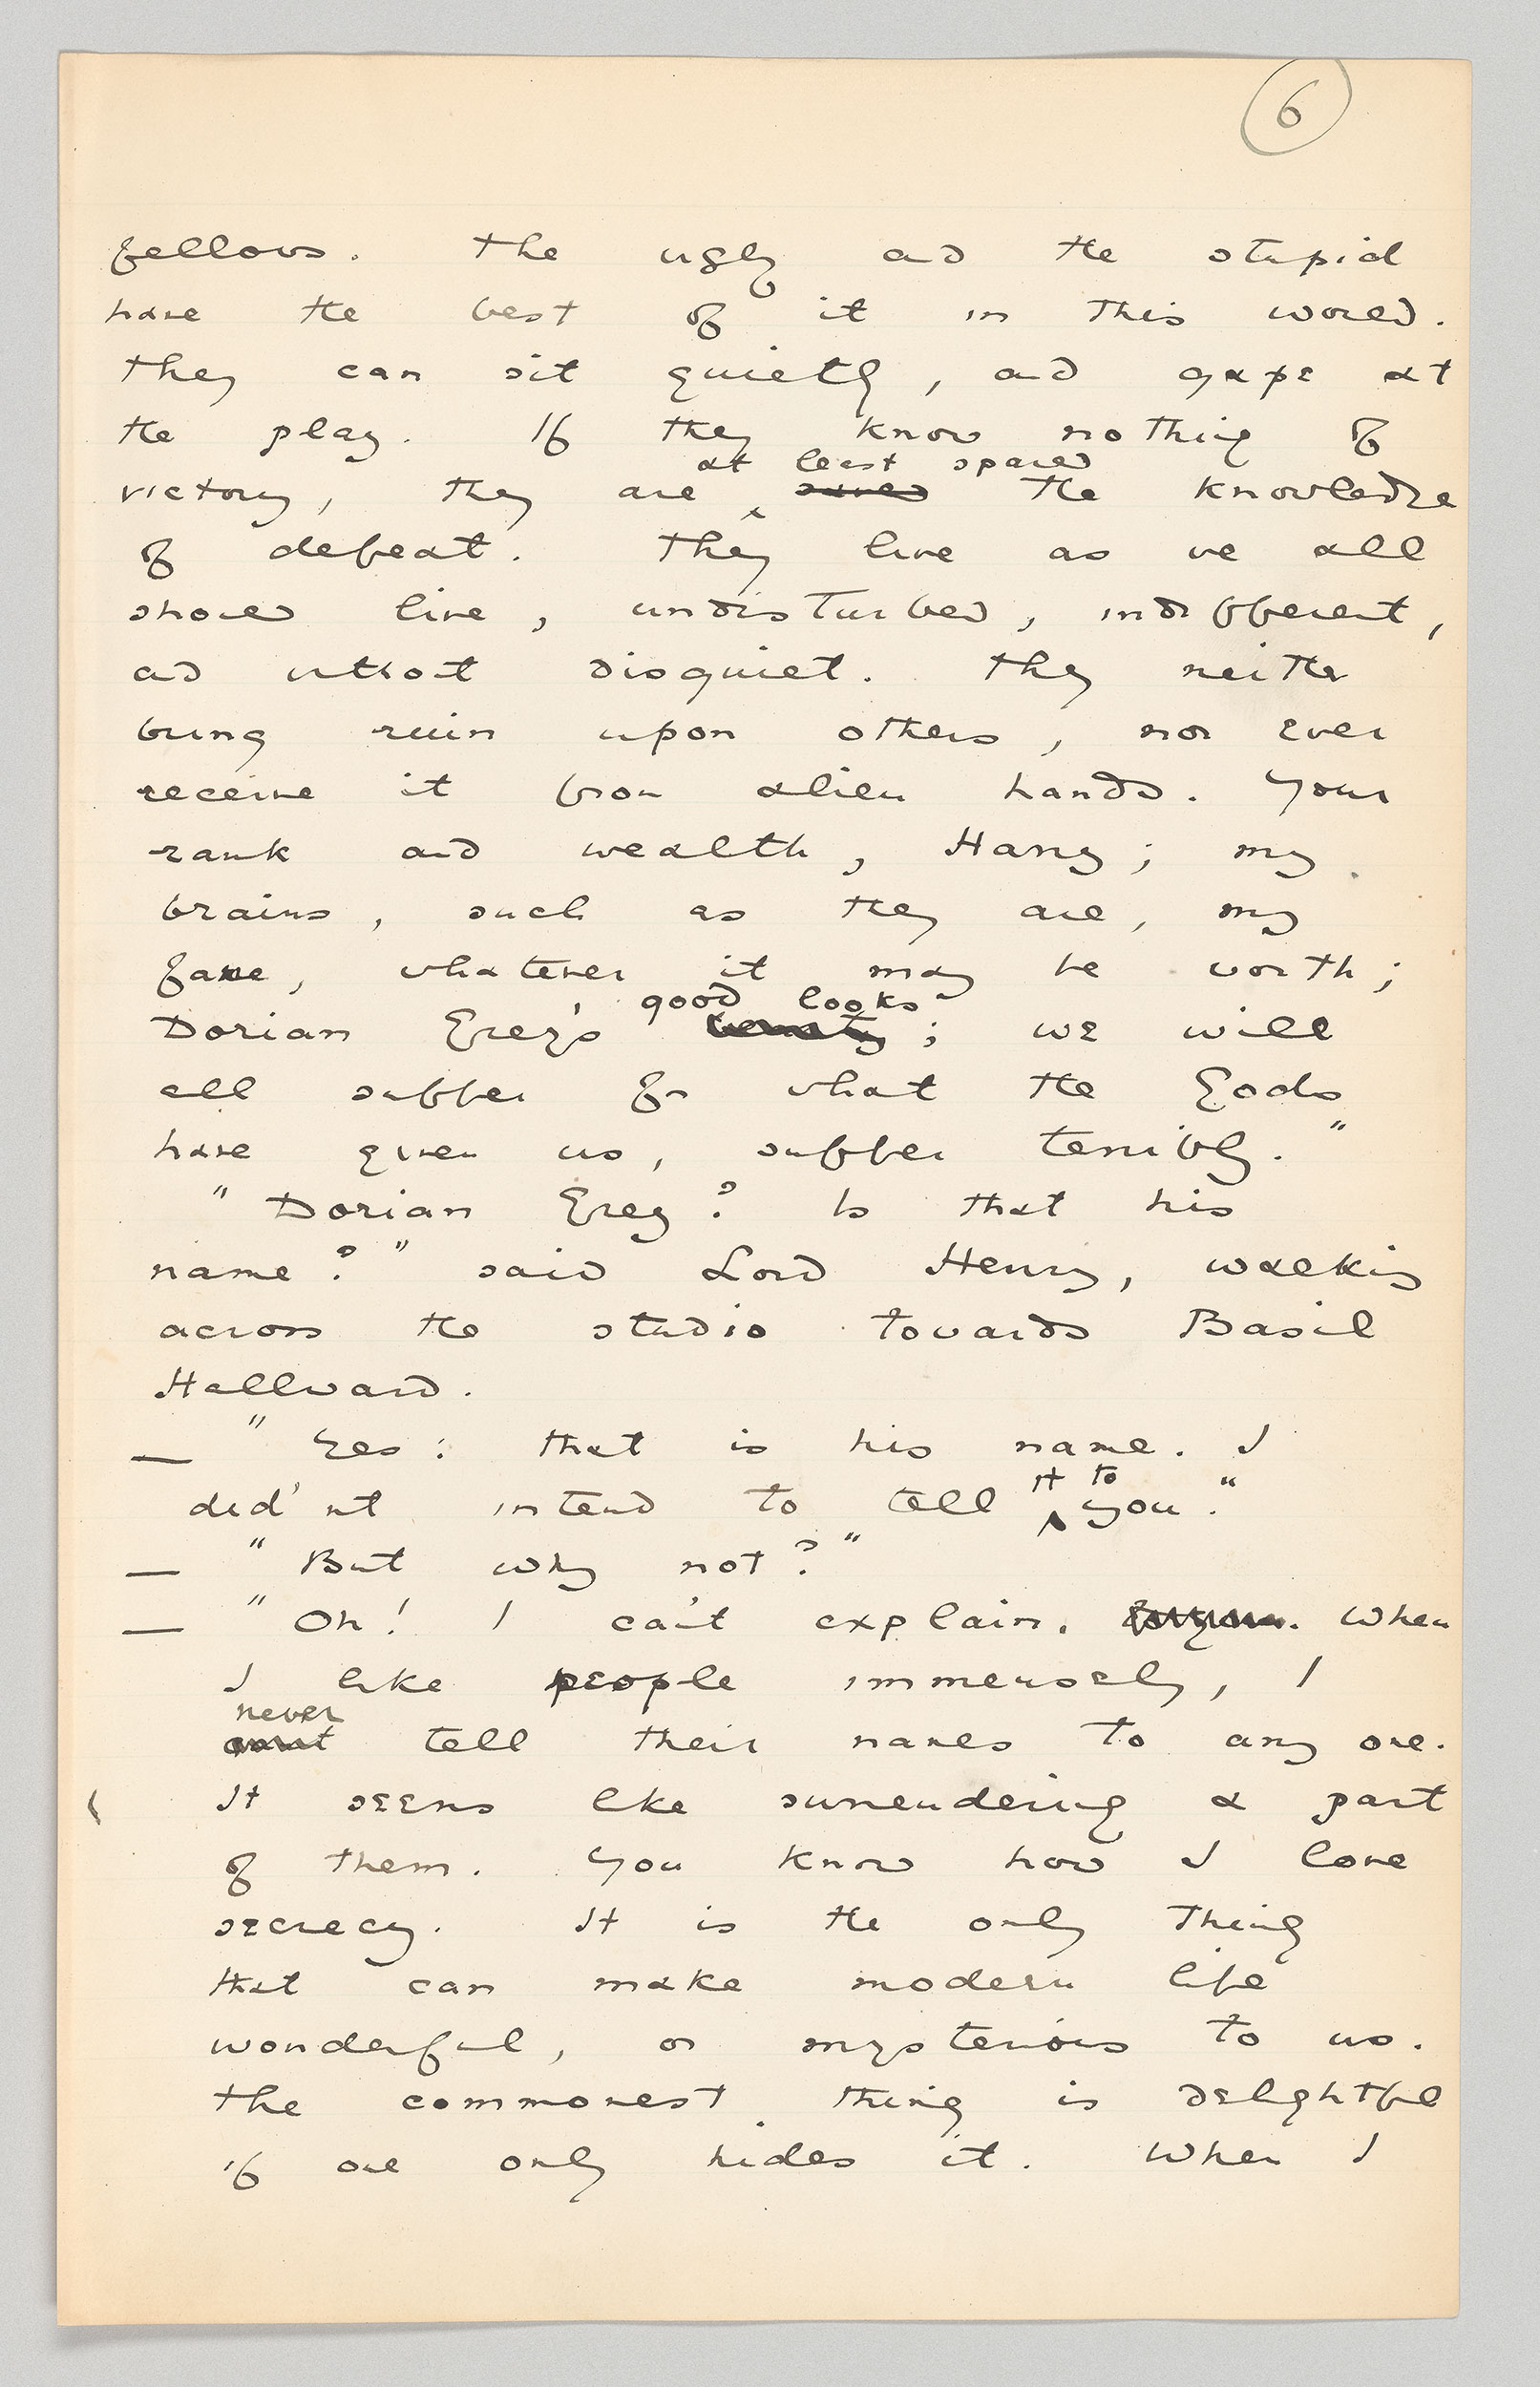 6
fellows. The ugly and the stupid
have the best of it in this world.
They can sit quietly, and gape at
the play. If they know nothing of
at least spared
victory, they are saved the knowledge
of defeat. They live as we all
should live, undisturbed, indifferent,
and without disquiet. They neither
bring ruin upon others, nor ever
receive it from alien hands. Your
rank and wealth, Harry; my
brains, such as they are, my
fame, whatever it may be worth;
good looks
Dorian Gray's beauty; we will
all suffer for what the Gods
have given us, suffer terribly."
"Dorian Gray? Is that his
name?" said Lord Henry, walking
across the studio towards Basil
Hallward.
— "Yes: that is his name. I
it to
did'nt intend to tell you."
— "But why not?"
— "Oh! I can't explain. When
I like people immensely, I
never
tell their names to any one.
It seems like surrendering a part
of them. You know how I love
secrecy. It is the only thing
that can make modern life
wonderful, or mysterious to us.
The commonest thing is delightful
if one only hides it. When I